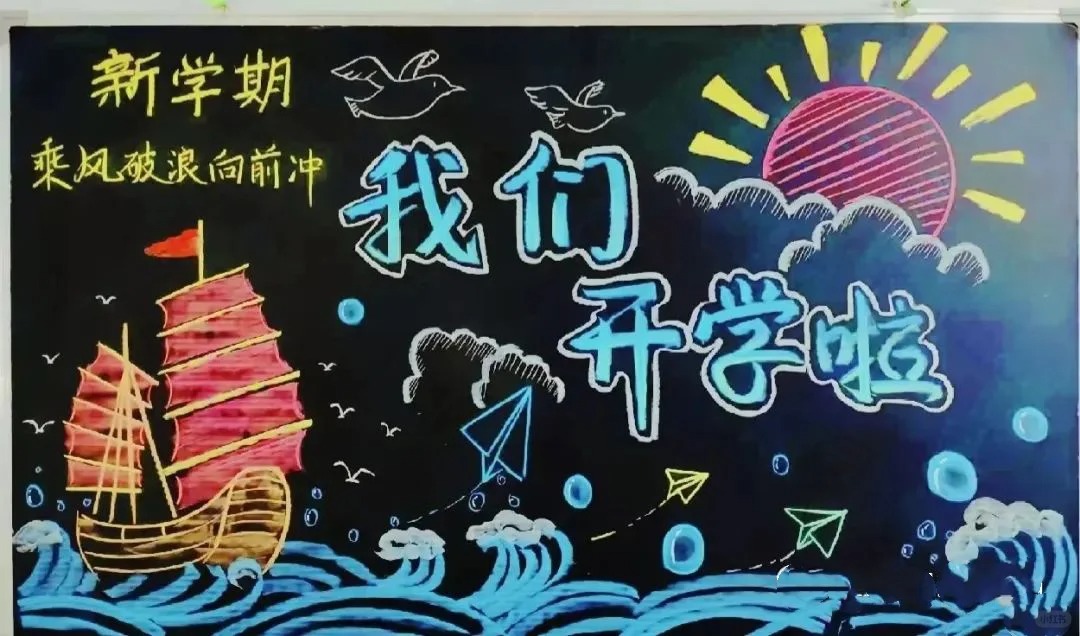 新学期
乘风破浪向前冲
我们
开学啦
小红书